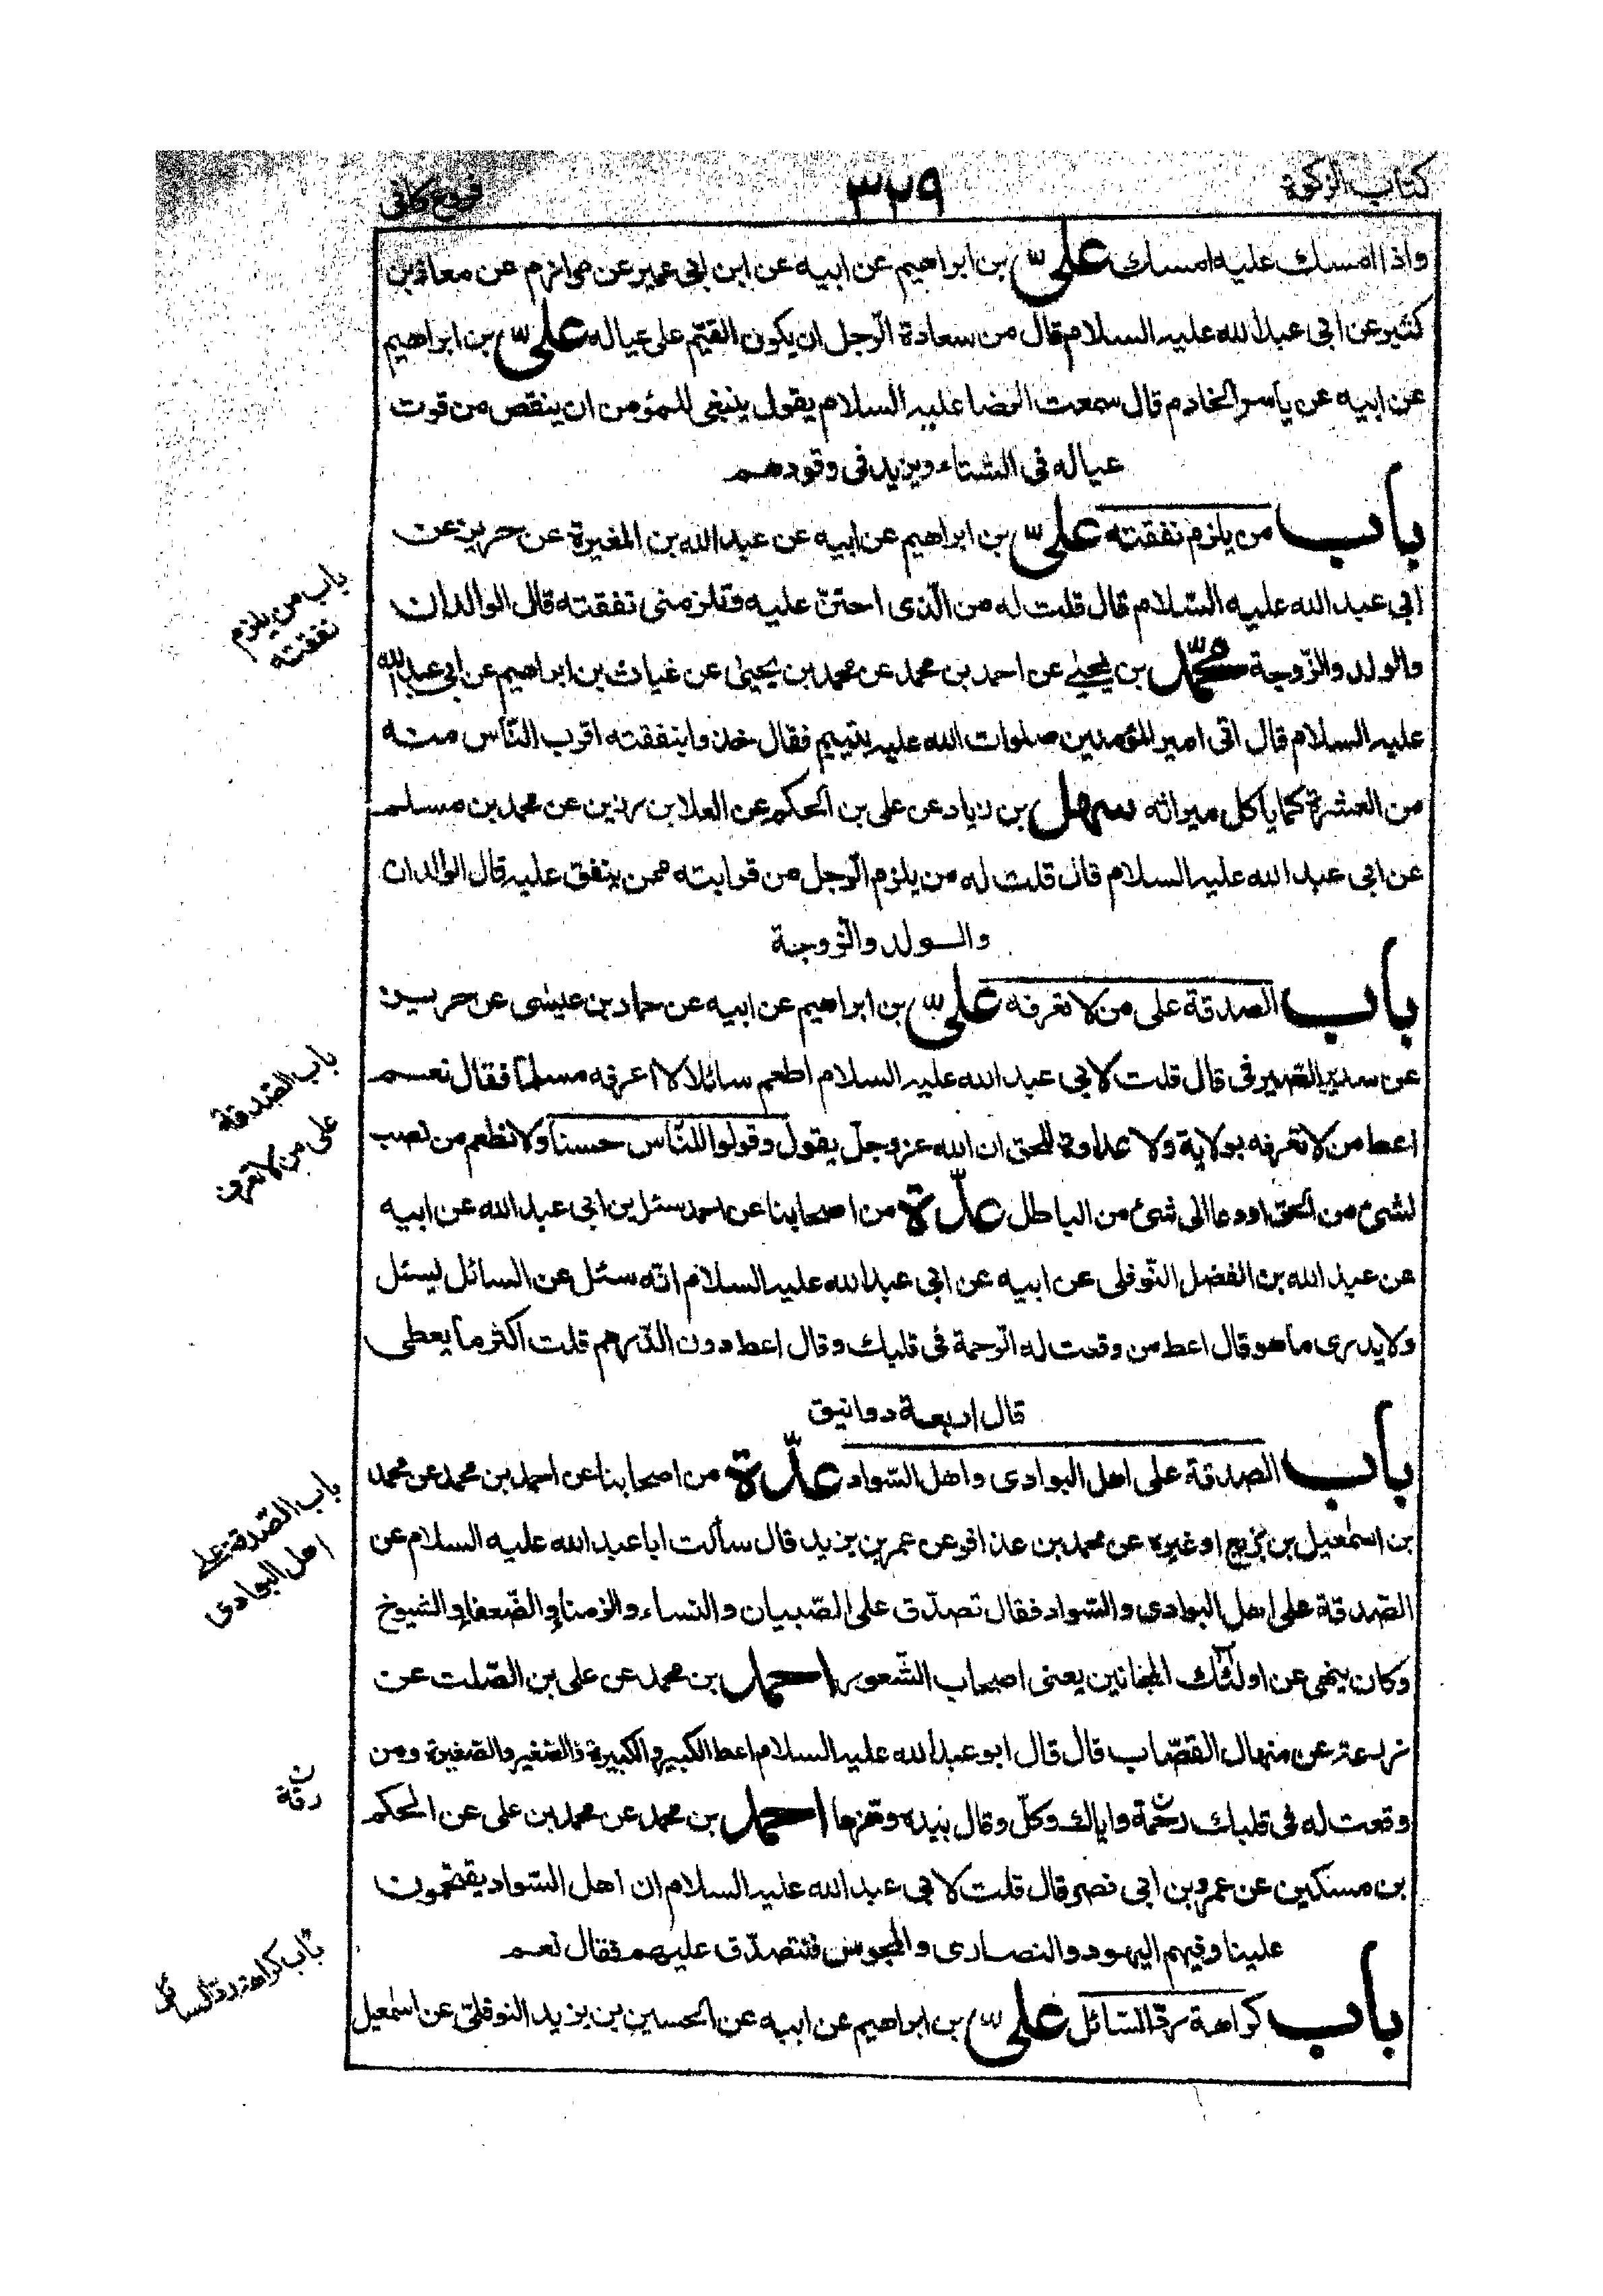 كتاب الزكوة
٣٢٩
فروع كافى
واذا امسك عليه امسك على بن ابراهيم عن ابيه عن ابن ابى عمير عن مرازم عن معاذ بن
كثير عن ابى عبد الله عليه السلام قال من سعادة الرّجل ان يكون القيّم على عياله علىّ بن ابراهيم
عن ابيه عن ياسر الخادم قال سمعت الرضا عليه السلام يقول ينبغى للمؤمن ان ينقص من قوت
عياله فى الشتاء ويزيد فى وقودهم
باب من يلزم نفقته علىّ بن ابراهيم عن ابيه عن عبد الله بن المغيرة عن حريز عن
ابى عبد الله عليه السّلام قال قلت له من الّذى احتنّ عليه وتلزمنى نفقته قال الوالدان
والولد والزّوجة محمّد بن يحيى عن احمد بن محمد عن محمد بن يحيى عن غياث بن ابراهيم عن ابى عبد الله
عليه السلام قال اتى امير المؤمنين صلوات الله عليه بيتيم فقال خذوا بنفقته اقرب النّاس منه
من العشيرة كما ياكل ميراثه سهل بن زياد عن على بن الحكم عن العلا بن رزين عن محمد بن مسلم
عن ابى عبد الله عليه السلام قال قلت له من يلزم الرّجل من قرابته ممن ينفق عليه قال الوالدان
والولد والزّوجة
باب الصدقة على من لا تعرفه علىّ بن ابراهيم عن ابيه عن حماد بن عيسى عن حريز
عن سدير الصيرفى قال قلت لابى عبد الله عليه السلام اطعم سائلا لا اعرفه مسلما فقال نعم
اعط من لا تعرفه بولاية ولا عداوة للحق ان الله عز وجلّ يقول وقولوا للنّاس حسنا ولا تطعم من نصب
لشئ من الحق او دعا الى شئ من الباطل عدّة من اصحابنا عن احمد بن ابى عبد الله عن ابيه
عن عبد الله بن الفضل النّوفلى عن ابيه عن ابى عبد الله عليه السلام انّه سئل عن السائل يسئل
ولا يدرى ما هو قال اعط من وقعت له الرّحمة فى قلبك وقال اعط دون الدّرهم قلت اكثر ما يعطى
قال اربعة دوانيق
باب الصدقة على اهل البوادى واهل السّواد عدّة من اصحابنا عن احمد بن محمد عن محمد
بن اسمعيل بن بزيع او غيره عن محمد بن عذافر عن عمر بن يزيد قال سألت ابا عبد الله عليه السلام عن
الصّدقة على اهل البوادى والسّواد فقال تصدّق على الصّبيان والنساء والزمنا والضّعفا والشيوخ
وكان ينهى عن اولئك المجانين يعنى اصحاب الشّعور احمد بن محمد عن على بن الصّلت عن
زرعة عن منهال القصّاب قال قال ابو عبد الله عليه السلام اعط الكبير والكبيرة والصّغير والصّغيرة ومن
وقعت له فى قلبك رحمة واياك وكلّ وقال بيده وهزها احمد بن محمد عن محمد بن على عن الحكم
بن مسكين عن عمرو بن ابى نصر قال قلت لابى عبد الله عليه السلام ان اهل السّواد يقتحمون
علينا وفيهم اليهود والنصارى والمجوس فنتصدّق عليهم فقال نعم
باب كراهة ردّ السّائل علىّ بن ابراهيم عن ابيه عن الحسين بن يزيد النوفلىّ عن اسمعيل
باب من يلزم
نفقته
باب الصّدقة
على من لا تعرف
باب الصّدقة على
اهل البوادى
ن
رقة
باب كراهة ردّ السائل